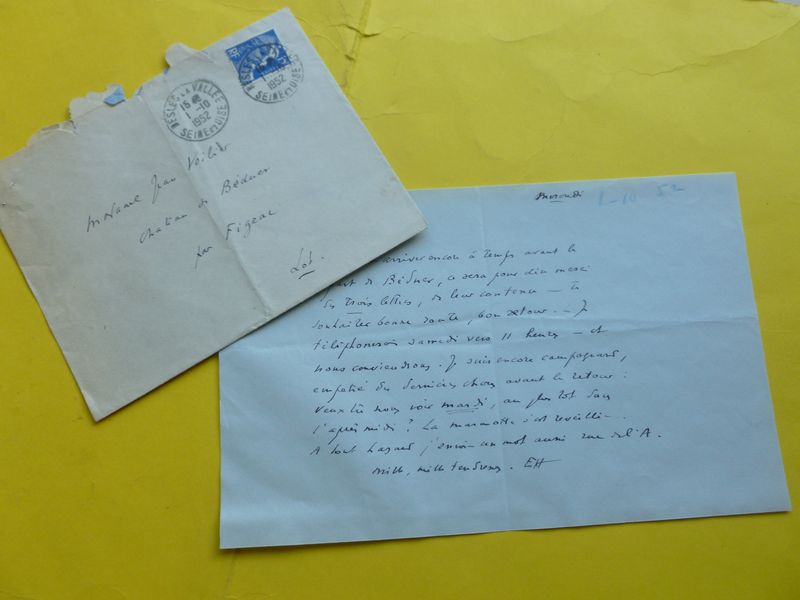 NESLES LA VALLEE
15 H
1 -10
1952
SEINE ET OISE
NESLES LA VALLEE
1 -10
1952
SEINE ET OISE
Madame Jean Voilier
Chateau de Béduer
par Figeac
Lot.
1-10 52
arriver encore à temps avant le
de Béduer, ce sera pour dire merci
des trois lettres, de leur contenu — te
souhaiter bonne route, bon retour. — Je
téléphonerai samedi vers 11 heures — et
nous conviendrons. Je suis encore campagnard,
empêtré des dernières choses avant le retour :
veux tu nous voir mardi au plus tôt dans
l'après midi ? La marmotte s'est réveillée...
A tout hasard j'envoie un mot aussi rue de l'A.
mille, mille tendresses. EH